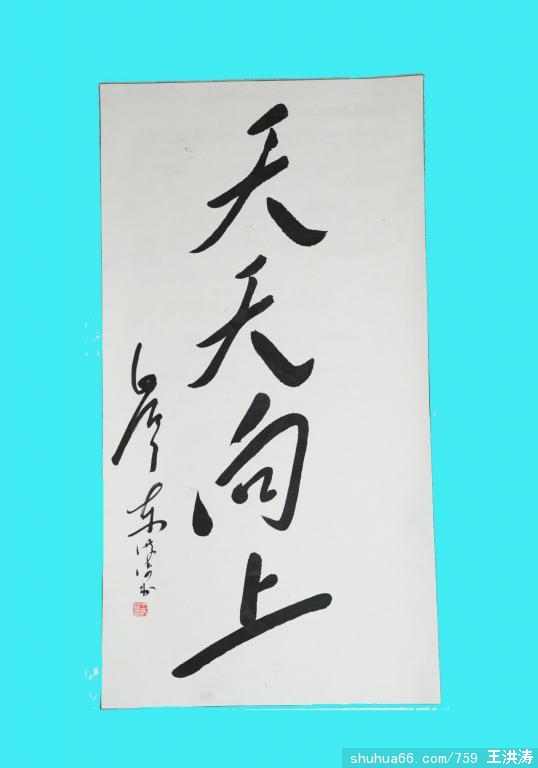 天天向上
shuhua66.com/759 王洪涛